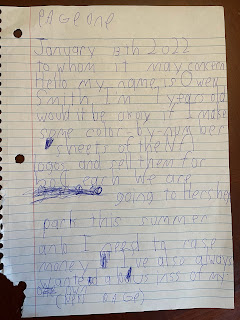 PAGE ONE
January 13th 2022
to whom it may concern
Hello my name is Owen
Smith. I'm 7 years old
would it be okay if I make
some color-by-number
sheets of the
logos and sell them for
each We are
going to Hershey
park this summer
and I need to rase
money. I've also always
wanted a busniss of my
own
(Next PAGE)